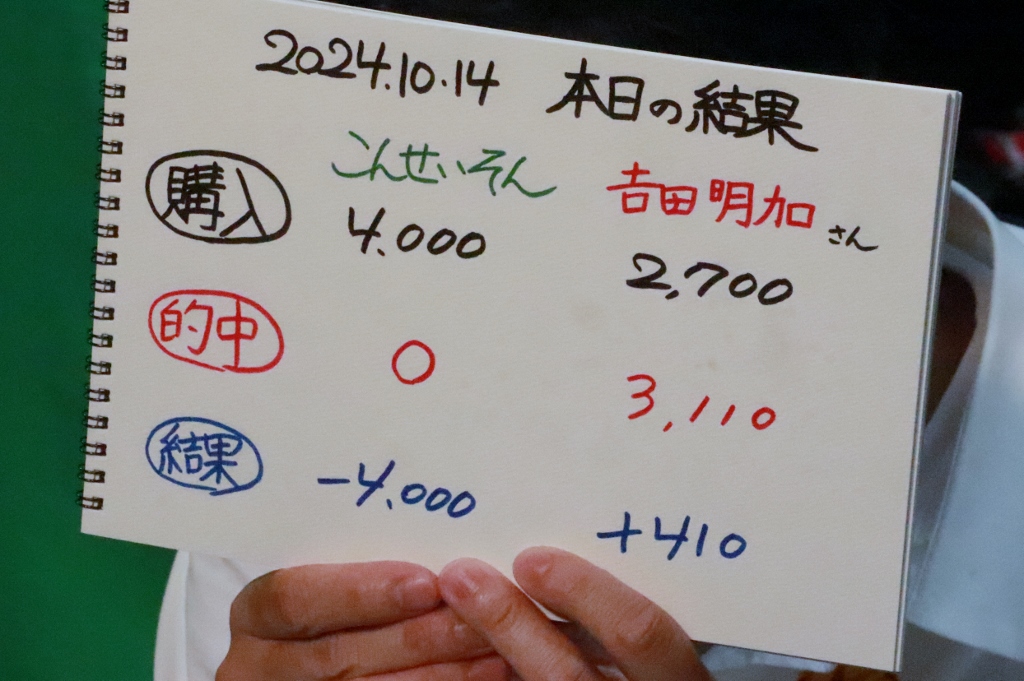 2024.10.14 本日の結果
こんせいそん 吉田明加さん
購入 4.000 2,700
的中 0 3,110
結果 -4.000 +410